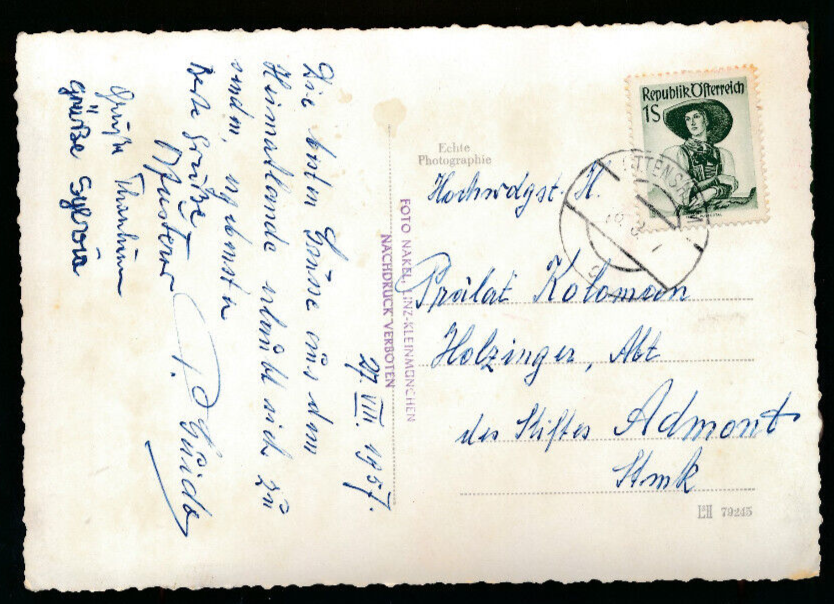 27. VIII. 1957.
Die besten Grüsse aus dem
Heimatlande erlaubt sich zu
senden, ergebenster
P. Guido
Beste Grüße
Grüße
Grüße Sylvia
Echte
Photographie
FOTO NAKE LINZ-KLEINMÜNCHEN
NACHDRUCK VERBOTEN
Republik Österreich
1S
Hochwdgst. H.
Prälat Koloman
Holzinger, Abt
des Stiftes Admont
Stmk
79245